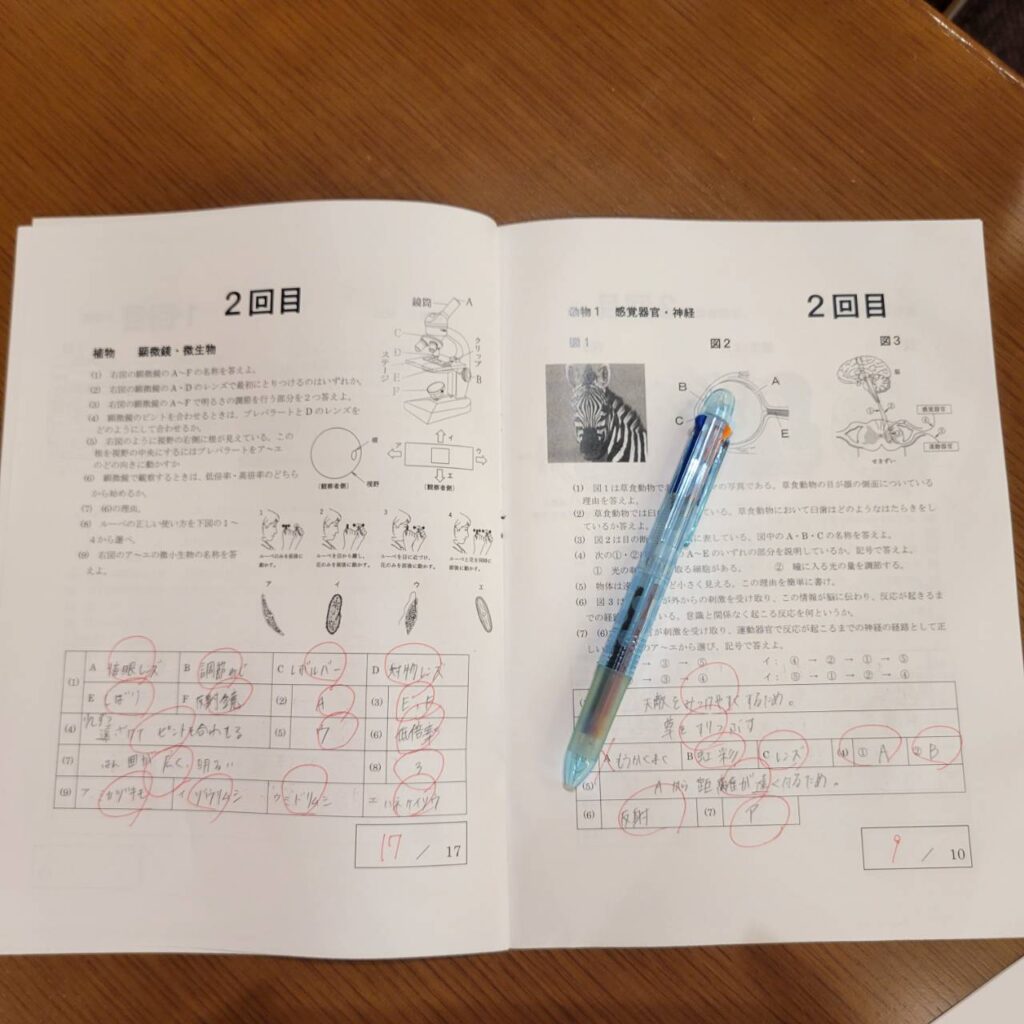 2回目
植物 顕微鏡・微生物
(1) 右図の顕微鏡のA~Fの名称を答えよ。
(2) 右図の顕微鏡のA・Dのレンズで最初にとりつけるのはいずれか。
(3) 右図の顕微鏡のA~Fで明るさの調節を行う部分を2つ答えよ。
(4) 顕微鏡のピントを合わせるときは、プレパラートとDのレンズを
どのようにして合わせるか。
(5) 右図のように視野の右側に核が見えている。この
核を視野の中央にするにはプレパラートをア~エ
のどの向きに動かすか
(6) 顕微鏡で観察するときは、低倍率・高倍率のどちら
から始めるか。
(7) (6)の理由。
(8) ルーペの正しい使い方を下図の1~
4から選べ。
(9) 右図のア~エの微小生物の名称を答
えよ。
鏡筒
A
C
D
E
F
B
クリップ
ステージ
核
視野
(観察者側)
ア
イ
ウ
エ
(観察者側)
1
2
3
4
ルーペのみを前後に
動かす。
ルーペを目から離し、
花のみを前後に動かす。
ルーペを目に近づけ、
花のみを前後に動かす。
ルーペと花を同時に
前後に動かす。
ア
イ
ウ
エ
(1) A 接眼レンズ B 調節ねじ C レボルバー D 対物レンズ
E しぼり F 反射鏡 (2) A (3) E、F
(4) 遠ざけて ピントを合わせる (5) ウ (6) 低倍率
(7) はん囲が広く、明るい (8) 3
(9) ア ミカヅキモ イ ゾウリムシ ウ ミドリムシ エ ハネケイソウ
17 / 17
動物1 感覚器官・神経
2回目
図1
図2
図3
A
B
C
E
脳
感覚器官
運動器官
せきずい
(1) 図1は草食動物で の写真である。草食動物の目が顔の側面についている
理由を答えよ。
(2) 草食動物では臼 ている。草食動物において臼歯はどのようなはたらきをし
ているか答えよ。
(3) 図2は目の断 に表している。図中のA・B・Cの名称を答えよ。
(4) 次の①・② A~Eのいずれの部分を説明しているか。記号で答えよ。
① 光の 取る細胞がある。 ② 瞳に入る光の量を調節する。
(5) 物体は遠 ど小さく見える。この理由を簡単に書け。
(6) 図3は が外からの刺激を受け取り、この情報が脳に伝わり、反応が起きるま
での経路 いる。意識と関係なく起こる反応を何というか。
(7) (6) が刺激を受け取り、運動器官で反応が起こるまでの神経の経路として正
し のア~エから選び、記号で答えよ。
→ ③ → ⑤ イ: ④ → ① → ⑤
→ ③ → ④ エ: ⑤ → ① → ② → ④
天敵をみつけやすくするため。
草をすりつぶす
A もうまく B 虹彩 C レンズ (4) ① A ② B
(5) Aから距離が遠くなるため。
(6) 反射 (7) ア
9 / 10